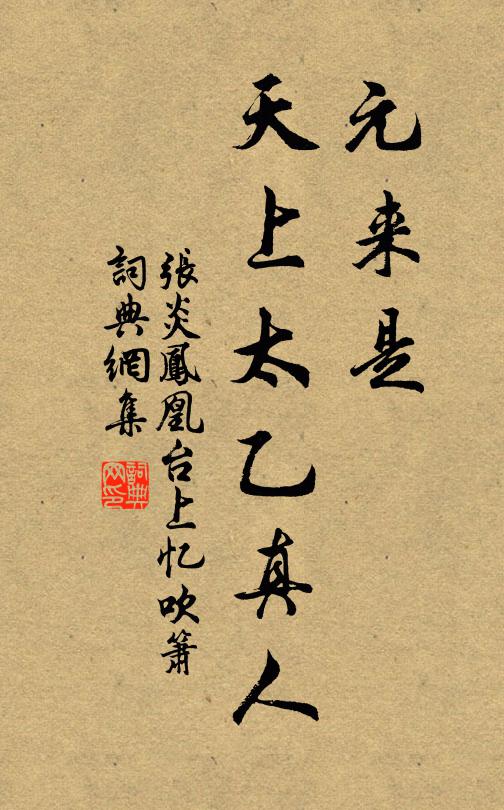 元来是
天上太乙真人
張炎鳳凰台上忆吹簫
詞典網集
詞典网印